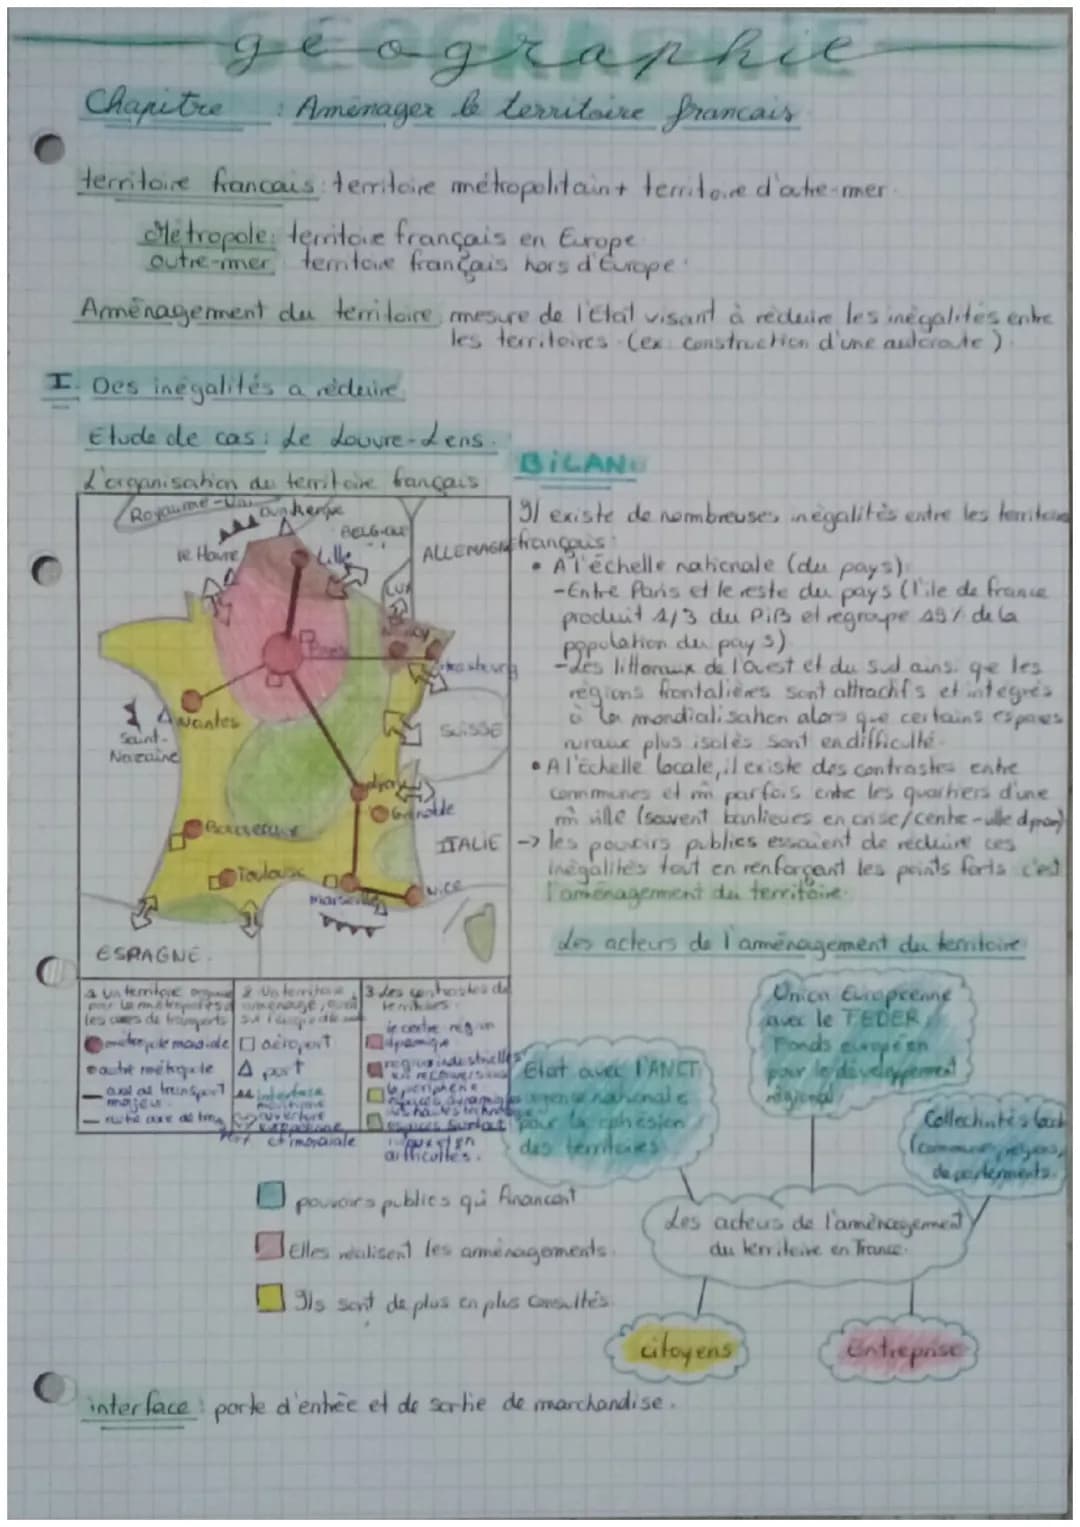 géographie
Chapitre : Aménager le territoire francais
territoire francais : territoire métropolitain + territoire d'outre-mer.
Métropole : territoire français en Europe
outre-mer territoire français hors d'Europe.
Aménagement du territoire mesure de l'Etat visant à réduire les inégalités entre
les territoires. (ex: construction d'une autoroute).
I. Des inégalités a réduire
Etude de cas : Le Louvre-Lens.
L'organisation du territoire français
Royaume-Uni
Dunkerque
BELGIQUE
le Havre
Lille
ALLEMAGNE
LUX
Paris
Strasbourg
Nantes
Saint-
Nazaire
SUISSE
Lyon
Grenoble
Bordeaux
ITALIE
Toulouse
Marseille
Nice
ESPAGNE.
1 Un territoire organisé
par les métropoles et
les axes de transports
métropole mondiale
autre métropole
axe de transport
majeur
autre axe de
2 Un territoire
aménagé,
aéroport
port
interface
maritime
ouverture
européenne
et mondiale
3 Les contrastes de
territoires
le centre région
dynamique
régions industrielles
en reconversion
la périphérie
espaces dynamiques
espaces surtout
ruraux et en
difficultés.
BILAN:
Il existe de nombreuses inégalités entre les territoires
français:
• A l'échelle nationale (du pays):
-Entre Paris et le reste du pays (l'ile de france
produit 1/3 du PiB et regroupe 19% de la
population du pays)
-Les littoraux de l'ouest et du sud ainsi que les
régions frontalières sont attractifs et intégrés
à la mondialisation alors que certains espaces
ruraux plus isolés sont en difficulté.
• A l'échelle locale, il existe des contrastes entre
communes et m̂ parfois entre les quartiers d'une
m̂ ville (souvent banlieues en crise/centre-ville
-> les pouvoirs publics essaient de réduire ces
inégalités tout en renforçant les points forts c'est
l'aménagement du territoire.
Les acteurs de l'aménagement du territoire
Union Européenne
avec le FEDER
Fonds européen
pour le développement
régional
Etat avec l'ANCT
agence nationale
pour la cohésion
des territoires
Collectivités
(commune, régions,
départements.
Les acteurs de l'aménagement
du territoire en France.
citoyens
Entreprise
pouvoirs publics qui financent
Elles réalisent les aménagements.
Ils sont de plus en plus consultés.
interface : porte d'entrée et de sortie de marchandise.